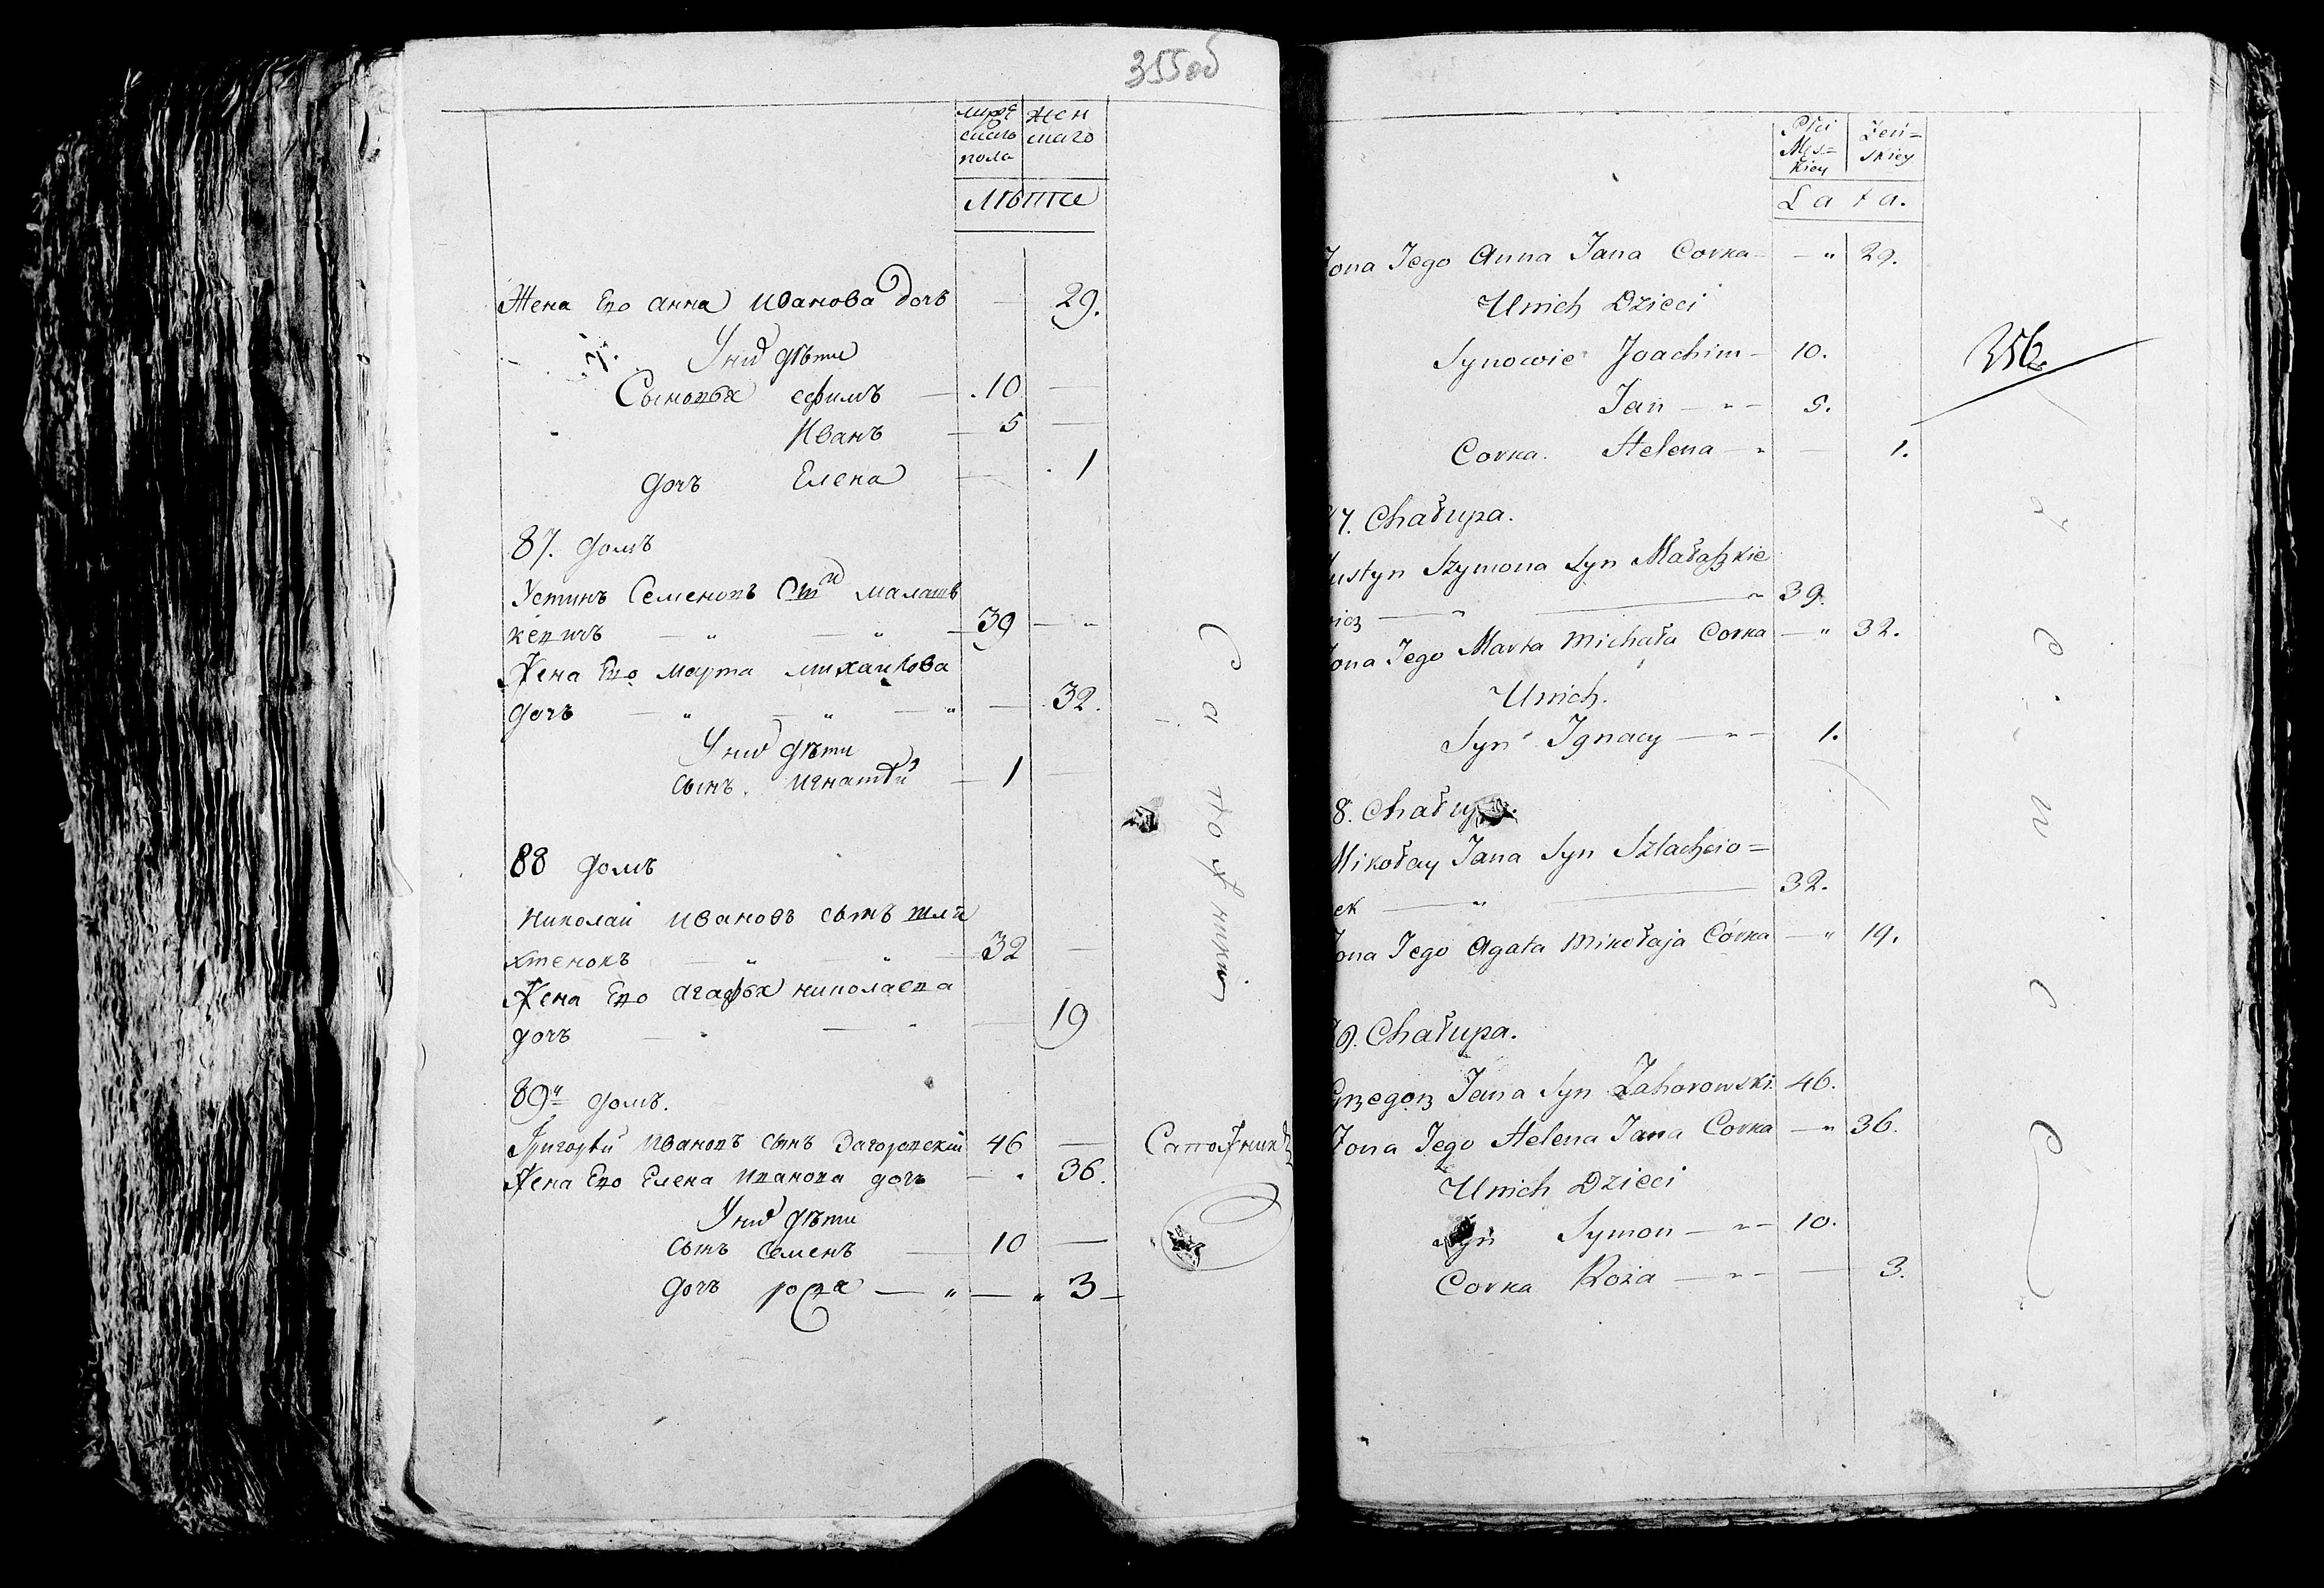 355об
мужескаго пола
женскаго
лѣта
Жена Его анна иванова дочь — 29.
У них дѣти
Сыновья ефимъ — 10 —
Иванъ — 5 —
дочь Елена — 1
87. домъ
Устинъ Семеновъ Сын малаш
кевичъ — " — " — 39 — "
Жена Его марта михайлова
дочь — " — " — " — 32.
У них дѣти
сынъ. игнатiй — 1 —
88 домъ
николай ивановъ сынъ шля
хтенокъ — " — " — 32 —
Жена Его агафья николаева
дочь — " — " — 19
89й домъ.
Григорiй ивановъ сынъ Загоровскiй 46 —
Жена Его Елена иванова дочь — " 36.
У них дѣти
сынъ семенъ — 10 —
дочь роза — " — " 3 —
Сапожникъ
Сапожники
Płci Męskiey
Żeńskiey
Lata.
Żona Jego Anna Jana Corka — " 29.
Unich Dzieci
Synowie Joachim — 10.
Jan — " — 5.
Corka. Helena — " — 1.
356.
7. Chałupa.
ustyn Szymona Syn Małaszkie
wicz — " — " 39.
ona Jego Marta Michała Corka — " 32.
Unich.
Syn Ignacy — " — 1.
8. Chałupa.
Mikołay Jana Syn Szlachcio=
ek — " — 32.
ona Jego Agata Mikołaja Córka — " 19.
9. Chałupa.
Grzegorz Jana Syn Zahorowski 46.
Żona Jego Helena Jana Corka — " 36.
Unich Dzieci
Syn Symon — " — 10.
Corka Roża — " — — 3.